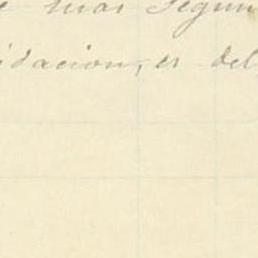 e mas segun
idacion, es del